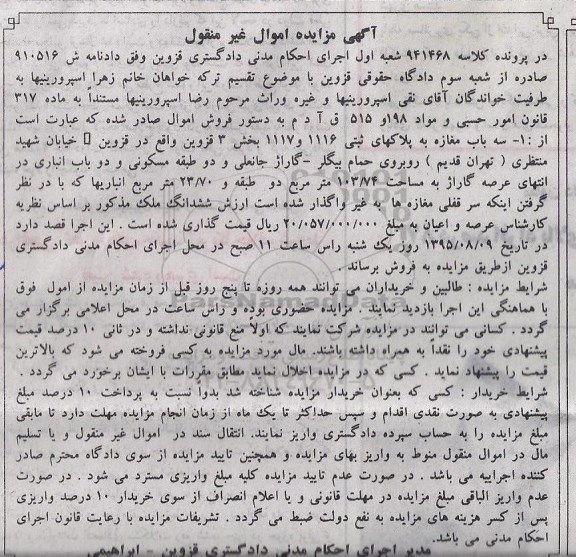 آگهی مزایده اموال غیر منقول
در پرونده کلاسه ۹۴۱۴۶۸ شعبه اول اجرای احکام مدنی دادگستری قزوین وفق دادنامه ش ۹۱۰۵۱۶
صادره از شعبه سوم دادگاه حقوقی قزوین با موضوع تقسیم ترکه خواهان خانم زهرا اسپورینیها به
طرفیت خواندگان آقای نقی اسپورینیها و غیره وراث مرحوم رضا اسپورینیها مستنداً به ماده ۳۱۷
قانون امور حسبی و مواد ۱۹۸و ۵۱۵ ق آ د م به دستور فروش اموال صادر شده که عبارت است
از :۱- سه باب مغازه به پلاکهای ثبتی ۱۱۱۶ و۱۱۱۷ بخش ۳ قزوین واقع در قزوین  خیابان شهید
منتظری ( تهران قدیم ) روبروی حمام بیگلر -گاراژ جانعلی و دو طبقه مسکونی و دو باب انباری در
انتهای عرصه گاراژ به مساحت ۱۰۳/۷۴ متر مربع دو طبقه و ۲۳/۷۰ متر مربع انباریها که با در نظر
گرفتن اینکه سر قفلی مغازه ها به غیر واگذار شده است ارزش ششدانگ ملک مذکور بر اساس نظریه
کارشناس عرصه و اعیان به مبلغ ۲۰/۰۵۷/۰۰۰/۰۰۰ ریال قیمت گذاری شده است . این اجرا قصد دارد
در تاریخ ۱۳۹۵/۰۸/۰۹ روز یک شنبه راس ساعت ۱۱ صبح در محل اجرای احکام مدنی دادگستری
قزوین ازطریق مزایده به فروش برساند .
شرایط مزایده : طالبین و خریداران می توانند همه روزه تا پنج روز قبل از زمان مزایده از امول فوق
با هماهنگی این اجرا بازدید نمایند . مزایده حضوری بوده و راس ساعت در محل اعلامی برگزار می
گردد . کسانی می توانند در مزایده شرکت نمایند که اولاً منع قانونی نداشته و در ثانی ۱۰ درصد قیمت
پیشنهادی خود را نقداً به همراه داشته باشند. مال مورد مزایده به کسی فروخته می شود که بالاترین
قیمت را پیشنهاد نماید . کسی که در مزایده اخلال نماید مطابق مقررات با ایشان برخورد می گردد .
شرایط خریدار : کسی که بعنوان خریدار مزایده شناخته شد بدواً نسبت به پرداخت ۱۰ درصد مبلغ
پیشنهادی به صورت نقدی اقدام و سپس حداکثر تا یک ماه از زمان انجام مزایده مهلت دارد تا مابقی
مبلغ مزایده را به حساب سپرده دادگستری واریز نمایند. انتقال سند در اموال غیر منقول و یا تسلیم
مال در اموال منقول منوط به واریز بهای مزایده و همچنین تایید مزایده از سوی دادگاه محترم صادر
کننده اجراییه می باشد . در صورت عدم تایید مزایده کلیه مبلغ واریزی مسترد می شود . در صورت
عدم واریز الباقی مبلغ مزایده در مهلت قانونی و یا اعلام انصراف از سوی خریدار ۱۰ درصد واریزی
پس از کسر هزینه های مزایده به نفع دولت ضبط می گردد . تشریفات مزایده با رعایت قانون اجرای
احکام مدنی می باشد.
مدیر اجرای احکام مدنی دادگستری قزوین - ابراهیمی